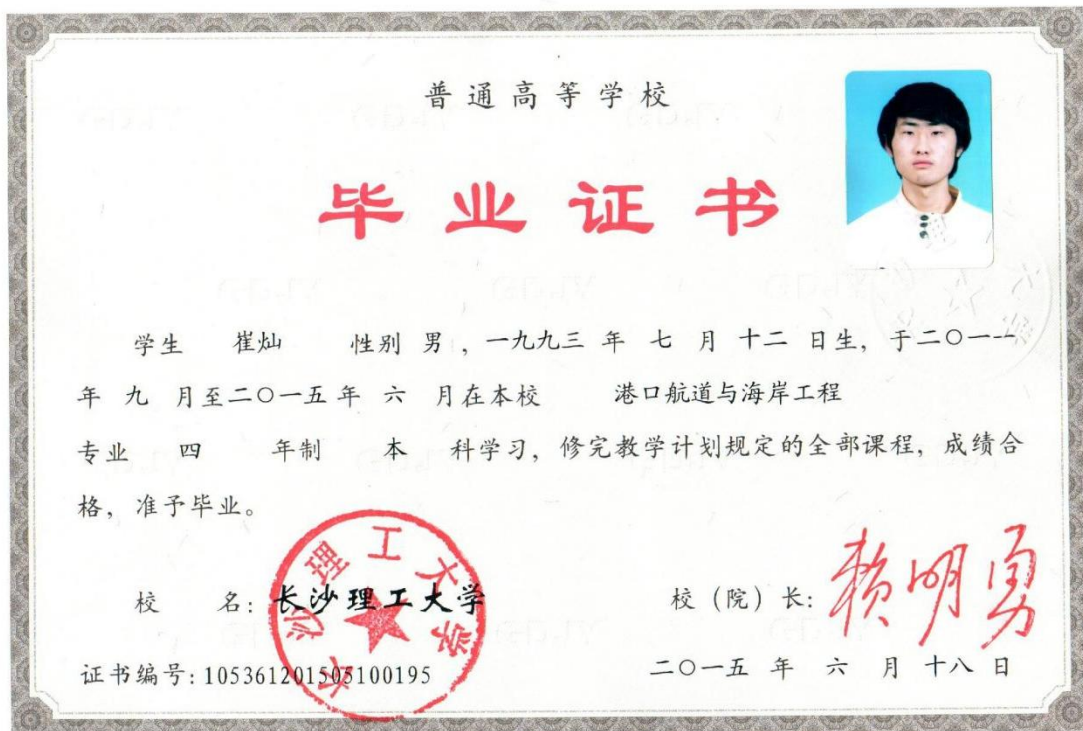 普通高等学校
毕业证书
学生 崔灿 性别 男，一九九三 年 七 月 十二 日生，于二〇一一
年 九 月至二〇一五年 六 月在本校 港口航道与海岸工程
专业 四 年制 本 科学习，修完教学计划规定的全部课程，成绩合
格，准予毕业。
校 名：长沙理工大学
校（院）长：赖明勇
长沙理工大学
证书编号：105361201505100195
二〇一五 年 六 月 十八 日